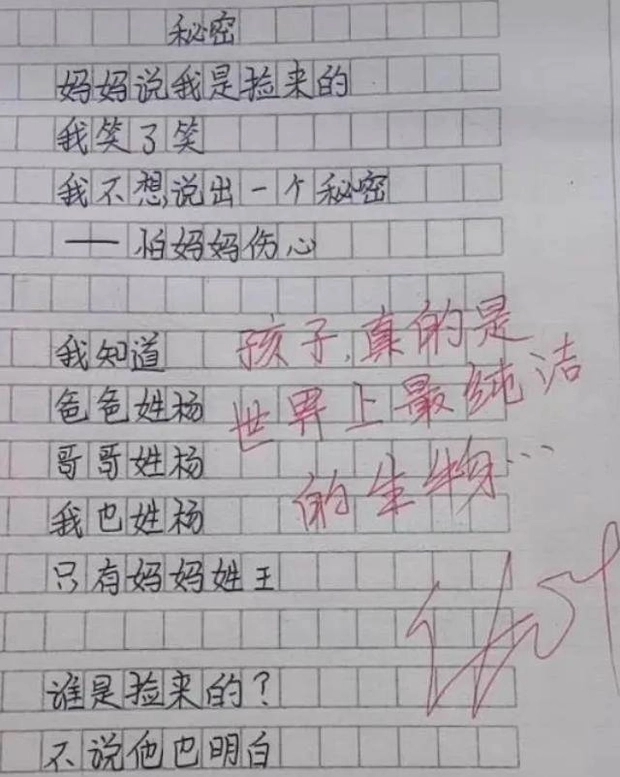 秘密
妈妈说我是捡来的
我笑了笑
我不想说出一个秘密
——怕妈妈伤心
我知道
爸爸姓杨
哥哥姓杨
我也姓杨
只有妈妈姓王
谁是捡来的？
不说也明白
孩子,真的是
世界上最纯洁
的生物…